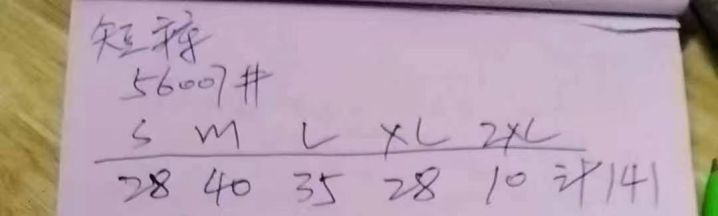 短裤
56007#
S M L XL 2XL
28 40 35 28 10 计141